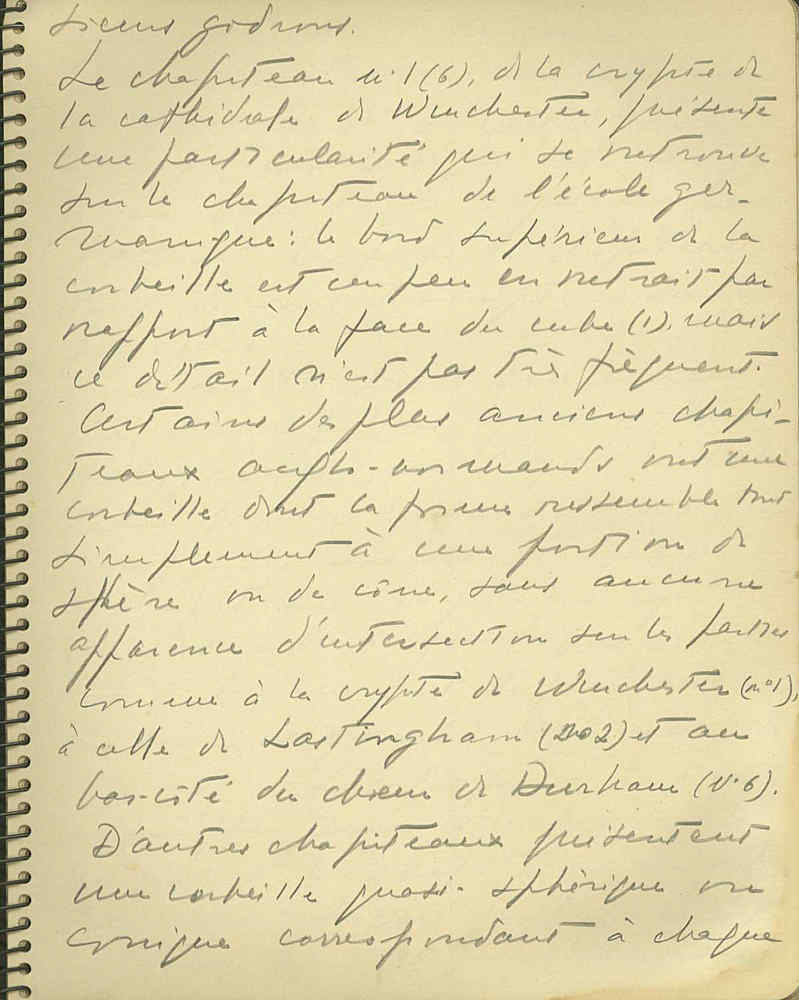 sieurs godrons.
Le chapiteau n.1 (6), de la crypte de
la cathédrale de Winchester, présente
une particularité qui se retrouve
sur le chapiteau de l'école ger-
manique: le bord supérieur de la
corbeille est un peu en retrait par
rapport à la face du cube (1). mais
ce détail n'est pas très fréquent.
Certains des plus anciens chapi-
teaux anglo-normands ont une
corbeille dont la forme ressemble tout
simplement à une portion de
sphère ou de cône, sans aucune
apparence d'intersection sur les parties
comme à la crypte de Winchester (n°1),
à celle de Lastingham (no2) et au
bas-côté du chœur de Durham (N.6).
D'autres chapiteaux présentent
une corbeille quasi-sphérique ou
conique correspondant à chaque